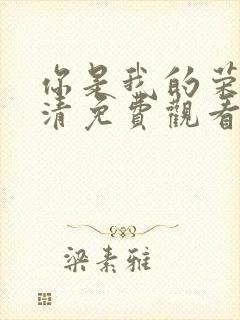 你是我的荣
清免費觀看
梁素雅